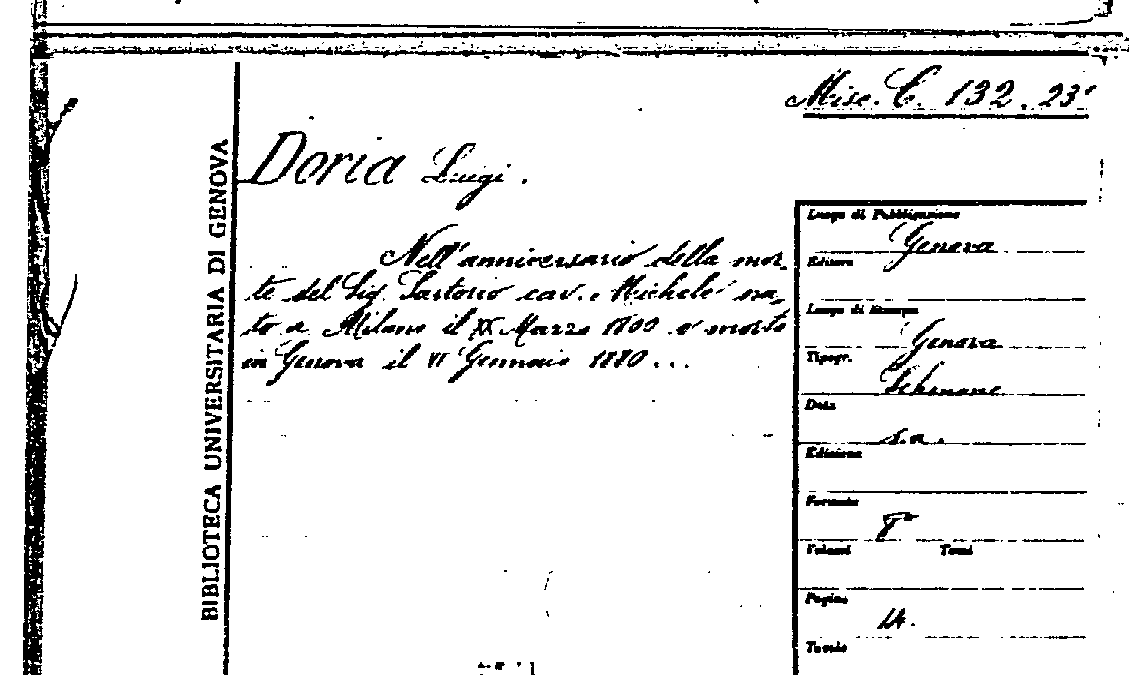 Misc. C. 132. 23
BIBLIOTECA UNIVERSITARIA DI GENOVA
Doria Luigi.
Nell'anniversario della mor-
te del Sig. Sartorio cav. Michele na-
to a Milano il XX Marzo 1800 e morto
in Genova il VI Gennaio 1880...
Luogo di Pubblicazione
Genova
Editore
Luogo di Stampa
Genova
Tipogr.
Schenone
Data
s.a.
Edizione
Formato
8°
Volumi Tomi
Pagine
14.
Tavole